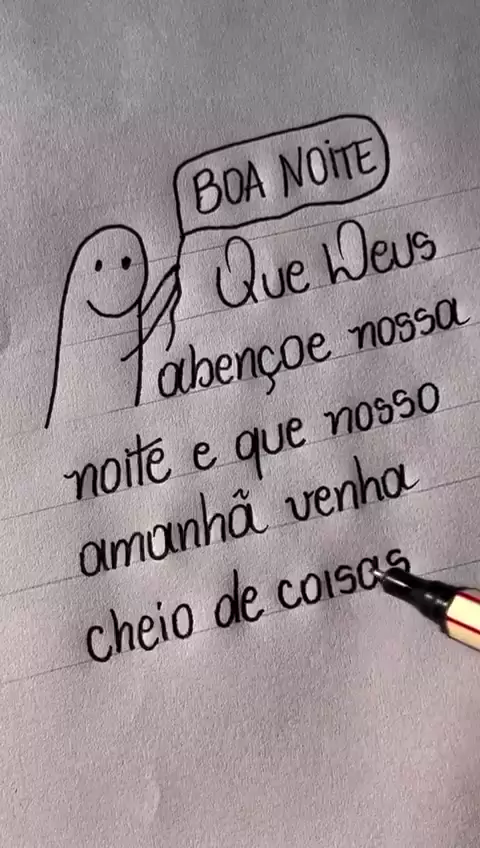 BOA NOITE
Que Deus
abençoe nossa
noite e que nosso
amanhã venha
cheio de coisas